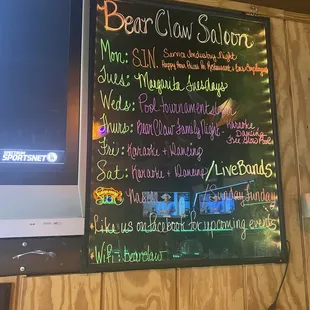 Bear Claw Saloon
Mon: S.I.N. Service Industry Night
Happy Hour Prices for Restaurant & Bar Employees
Tues: Margarita Tuesdays
Weds: Pool tournaments
Thurs: Bear Claw Family Night - Karaoke
Dancing
Free Slow Pool
Fri: Karaoke + Dancing
Sat: Karaoke + Dancing / Live Bands
/ Sunday Funday
Like us on facebook for upcoming events
WiFi - bearclaw
SPECTRUM
SPORTSNET